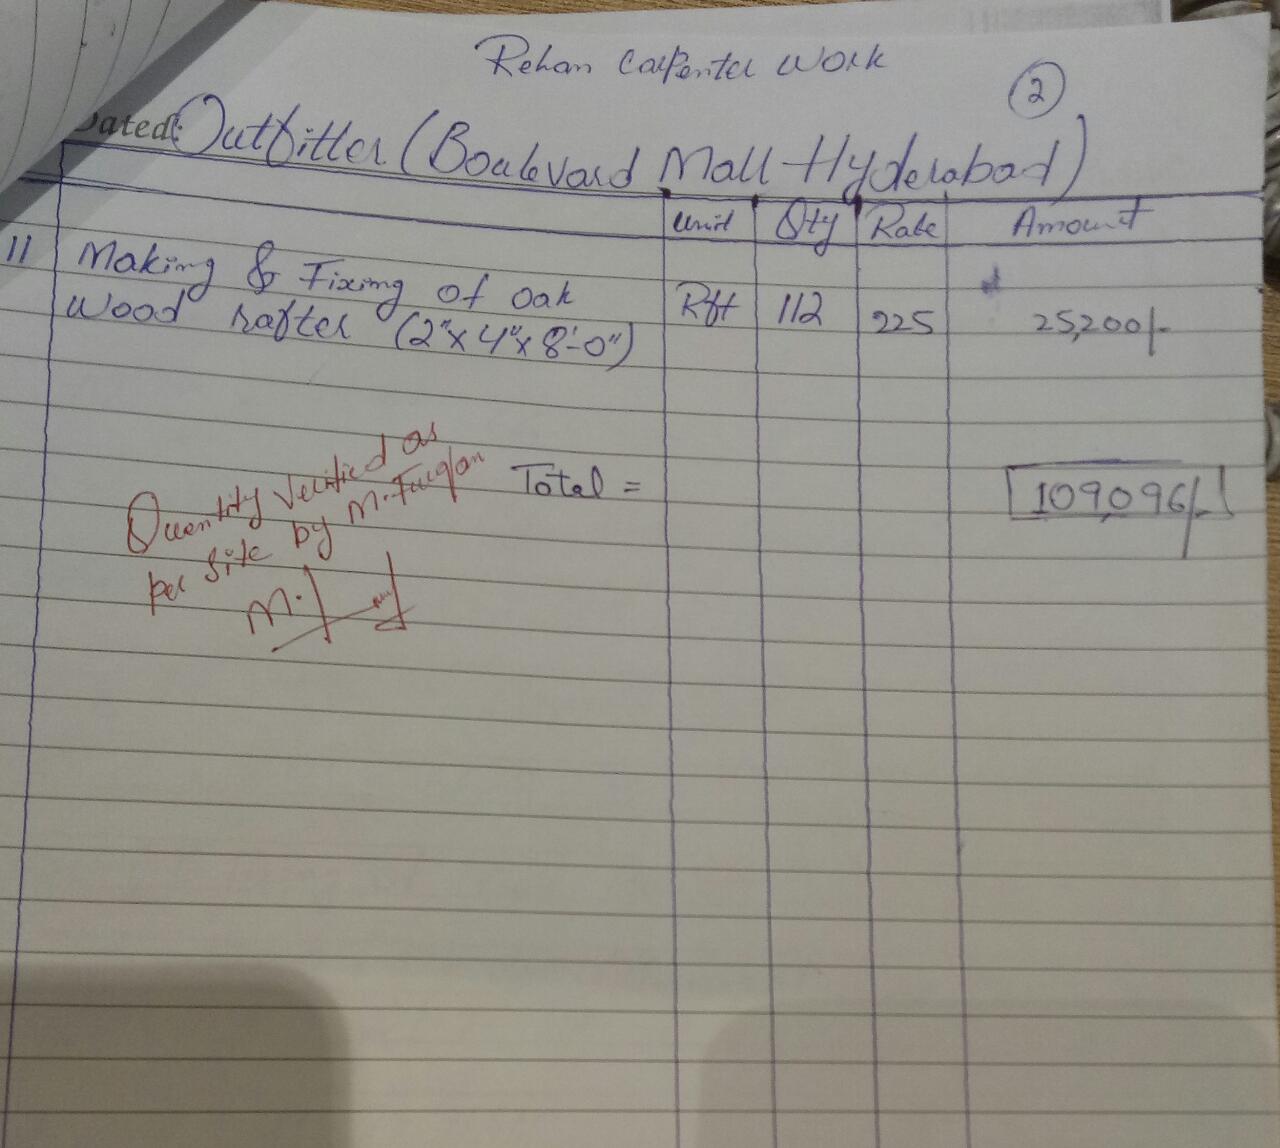 Rehan Carpenter Work
2
Dated: Outfitter (Boulevard Mall Hyderabad)
Unit Qty Rate Amount
11 Making & Fixing of oak wood rafter (2"x4"x8'-0") Rft 112 225 25,200/-
Total = 109,096/-
Quantity Verified as
per Site by M. Furqan
M.